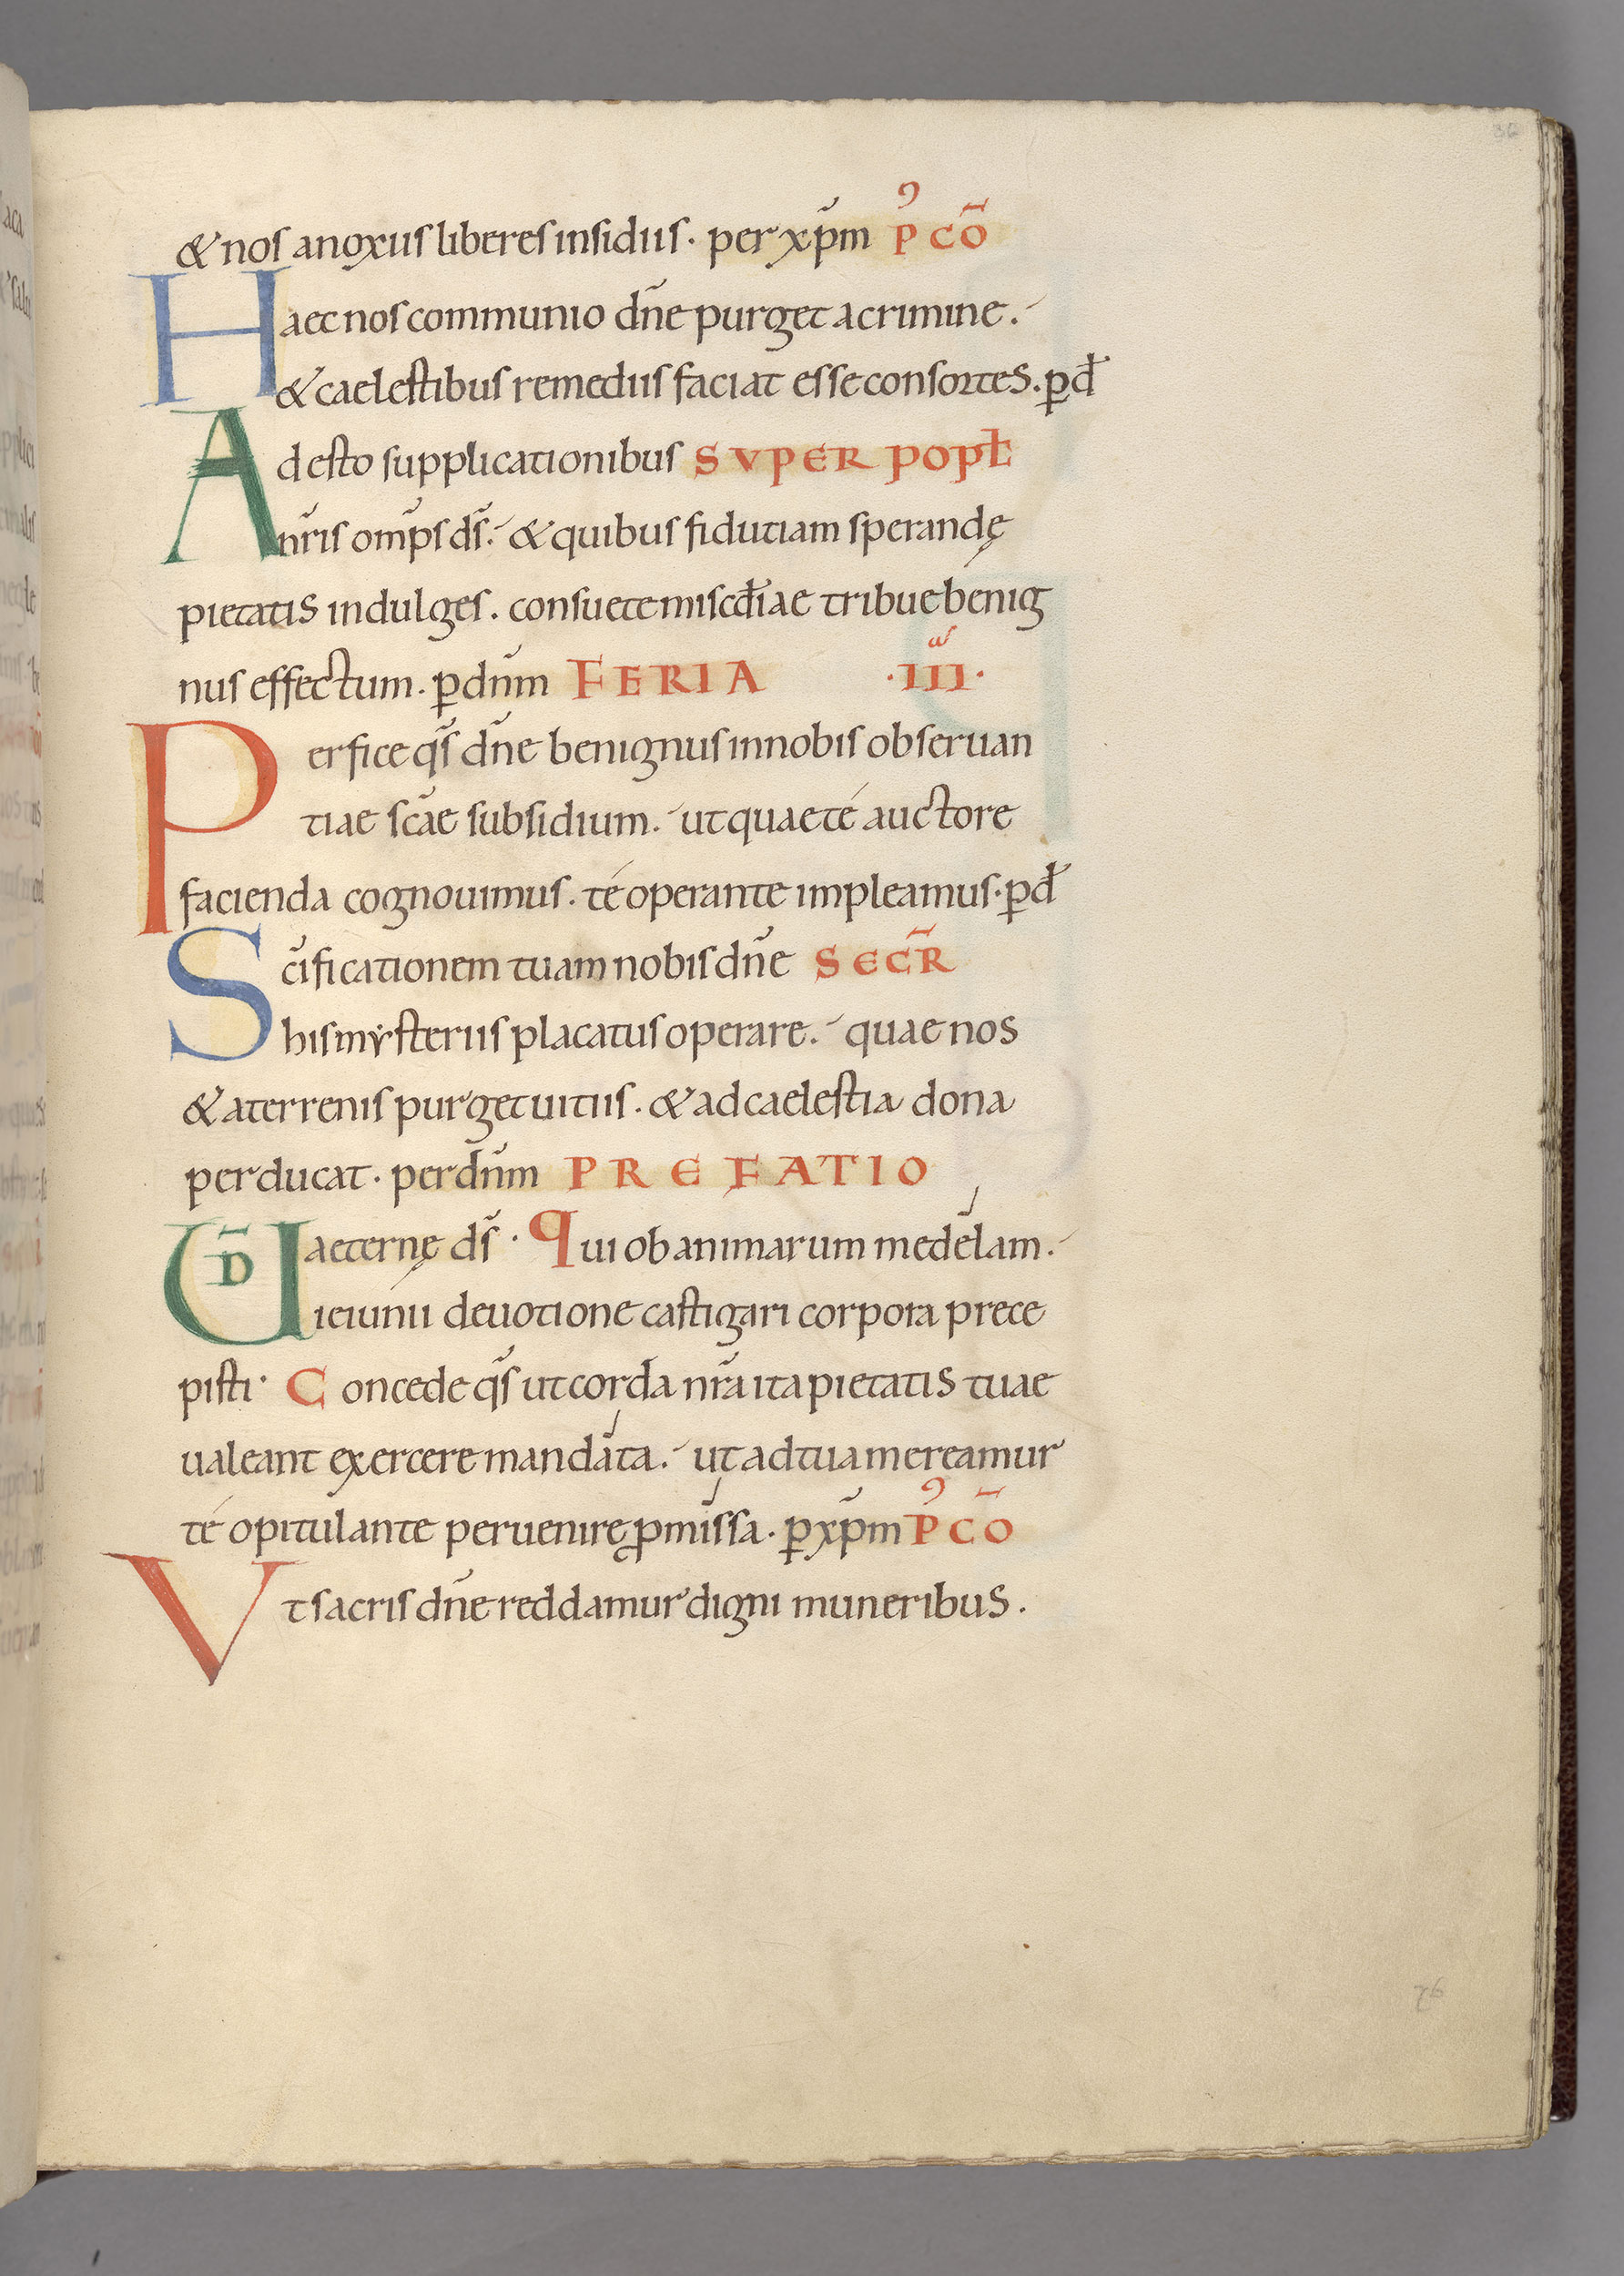 36
& nos anoxus liberes insidus · per xp̄m P᾽ CŌ
Haec nos communio dn̄e purget a crimine .
& caelestibus remedus faciat esse consortes . p̱ d̄
Adesto supplicationibus SVPER POPŁ
nr̄is omp̄s ds̄ . & quibus fidutiam sperandę
pietatis indulges . consuete misc̄diae tribue benig
nus effectum . p̱ dn̄m FERIA · III ·
Perfice qs̄ dn̄e benignus in nobis obseruan
tiae sc̄ae subsidium . ut quae té auctore
facienda cognouimus . té operante impleamus · p̱ d̄
Sc̄ificationem tuam nobis dn̄e SECR̄
his mẏsterus placatus operare . quae nos
& a terrenis purget uitiis . & ad caelestia dona
perducat · per dn̄m PREFATIO
UD̄ aeternę ds̄ · Qui ob animarum medelam .
ieiunii deuotione castigari corpora prece
pisti · Concede qs̄ ut corda nr̄a ita pietatis tuae
ualeant exercere mandata . ut ad tua mereamur
té opitulante peruenire ꝓmissa . p̱ xp̄m P᾽ CŌ
Vt sacris dn̄e reddamur digni muneribus .